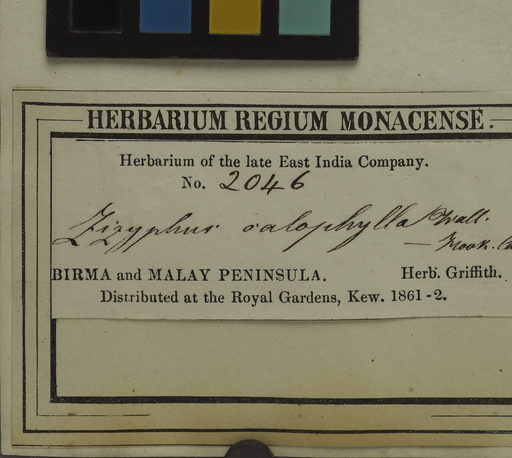 HERBARIUM REGIUM MONACENSE.
Herbarium of the late East India Company.
No. 2046
Zizyphus calophylla Wall.
— Hook.
BIRMA and MALAY PENINSULA. Herb. Griffith.
Distributed at the Royal Gardens, Kew. 1861-2.